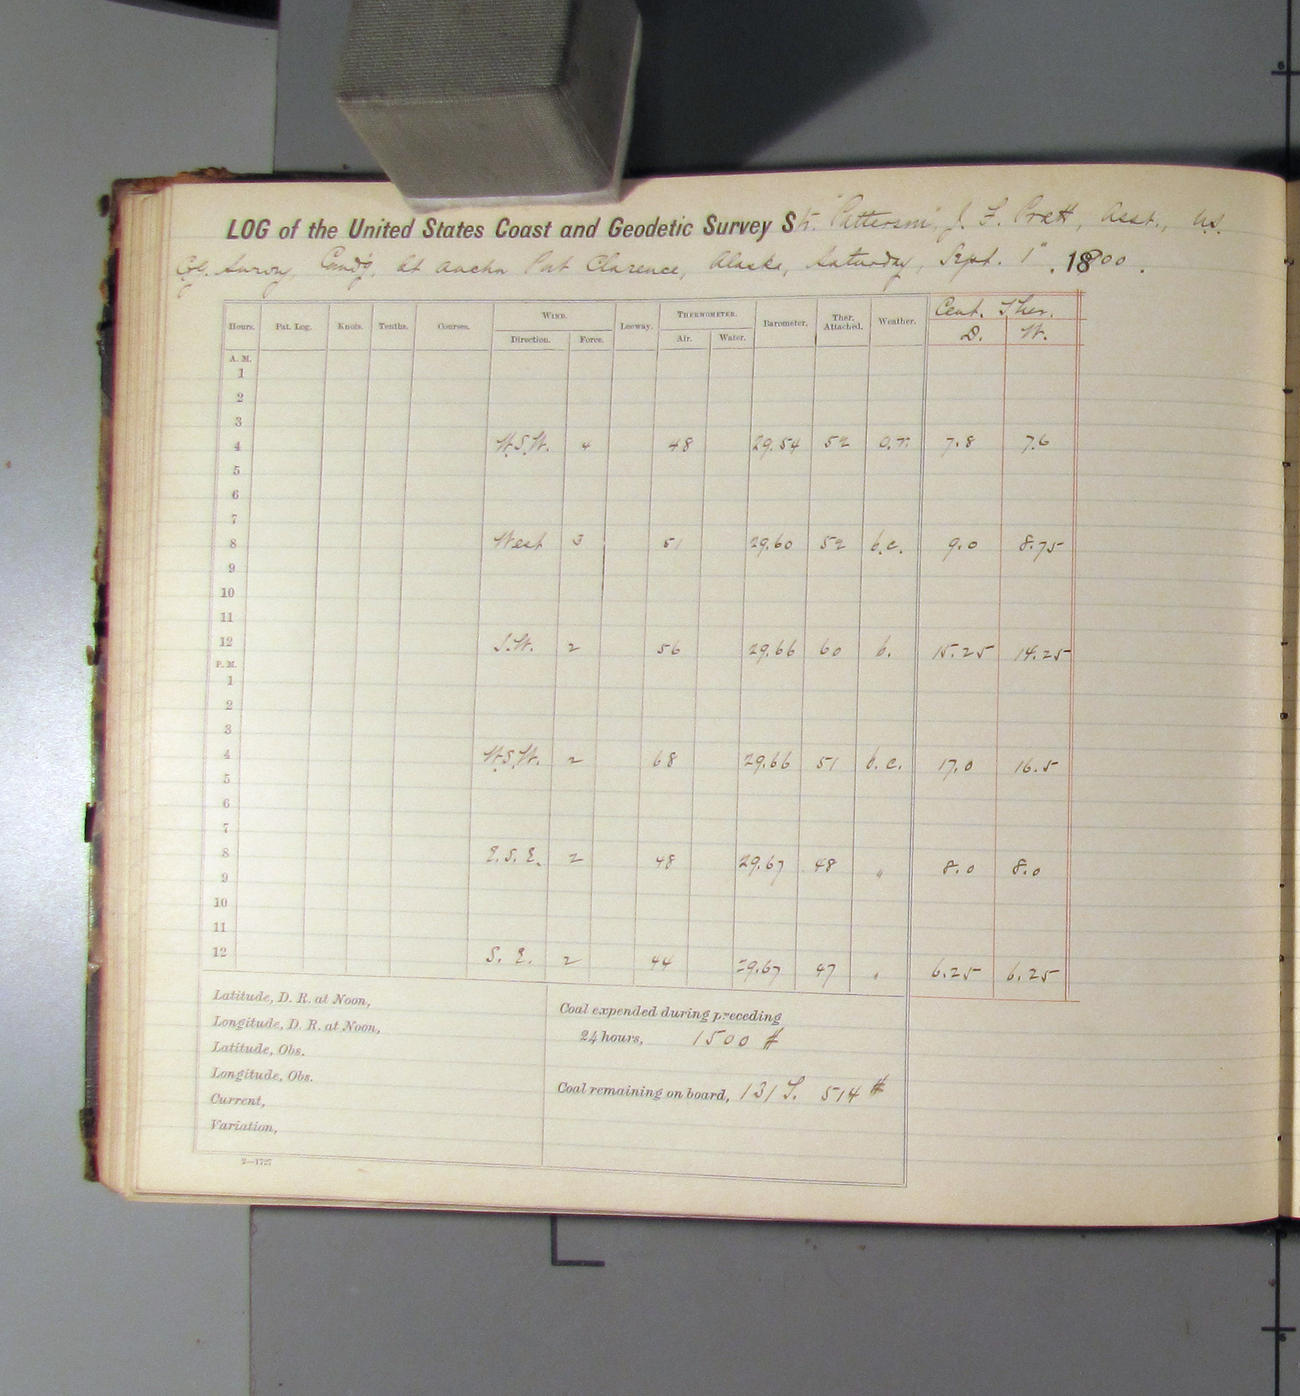 LOG of the United States Coast and Geodetic Survey Str. "Patterson", J. F. Pratt, Asst., U.S.
Cst. Survey, Comd'g, at anchor Port Clarence, Alaska, Saturday, Sept. 1", 1900.
Hours. Pat. Log. Knots. Tenths. Courses. WIND. Leeway. THERMOMETER. Barometer. Ther. Attached. Weather. Cent. Ther.
Direction. Force. Air. Water. D. W.
A. M.
1
2
3
4 W.S.W. 4 48 29.54 52 o.r. 7.8 7.6
5
6
7
8 West 3 51 29.60 52 b.c. 9.0 8.75
9
10
11
12 S.W. 2 56 29.66 60 b. 15.25 14.25
P. M.
1
2
3
4 W.S.W. 2 68 29.66 51 b.c. 17.0 16.5
5
6
7
8 E.S.E. 2 48 29.67 48 " 8.0 8.0
9
10
11
12 S.E. 2 44 29.67 47 " 6.25 6.25
Latitude, D. R. at Noon,
Longitude, D. R. at Noon,
Latitude, Obs.
Longitude, Obs.
Current,
Variation,
Coal expended during preceding
24 hours, 1500 #
Coal remaining on board, 131 T. 514 #
2—1727